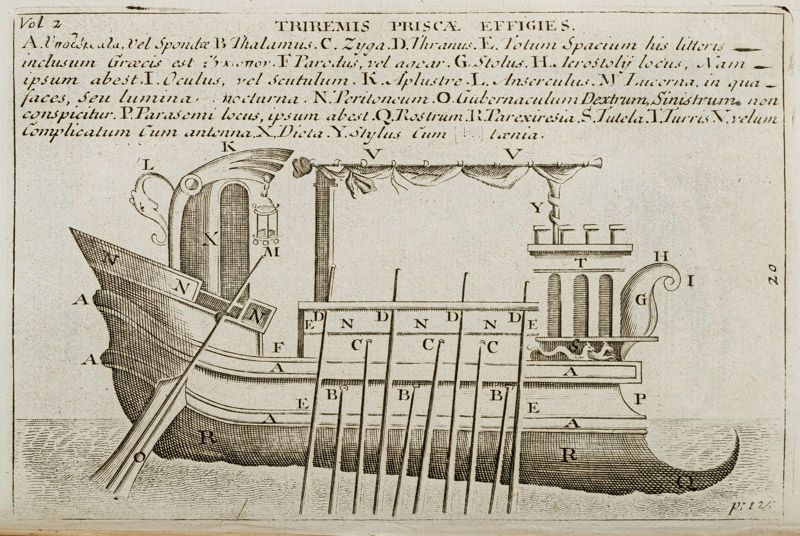 Vol 2
TRIREMIS PRISCÆ EFFIGIES.
A. vel Spondæ B Thalamus. C. Zyga. D. Thranus. E. Totum Spacium his litteris
inclusum Græcis est F Parodus, vel agear. G. Stolus. H. Acrostolÿ locus, Nam
ipsum abest. I. Oculus, vel Scutulum. K. Aplustre. L. Anserculus. M Lucerna, in qua
faces, seu lumina nocturna. N. Peritonoum. O. Gubernaculum Dextrum, Sinistrum non
conspicitur. P. Parasemi locus, ipsum abest. Q. Rostrum. R. Parexiresia. S. Tutela. T. Turris V. velum
Complicatum Cum antenna. X. Dieta. Y. Stylus Cum tænia.
K
L V V
X Y
M T H
N I
N G
A N
20
E D N D N D N D E
C C C S
F
A A A
E B B B E P
A A
R R
O Q
p: 125